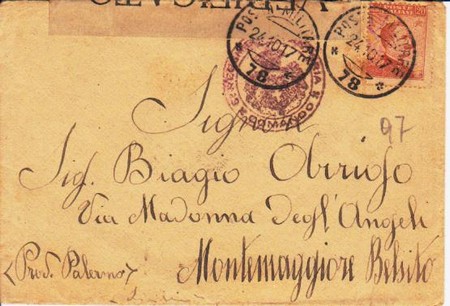 VERIFICATO
POSTA MILITARE
24.10.17
* 78 *
POSTA MILITARE
24.10.17
* 78 *
20
COMANDO
97
Sig. Biagio Arrigo
Via Madonna degl'Angeli
Montemaggiore Belsito
(Prov. Palermo)